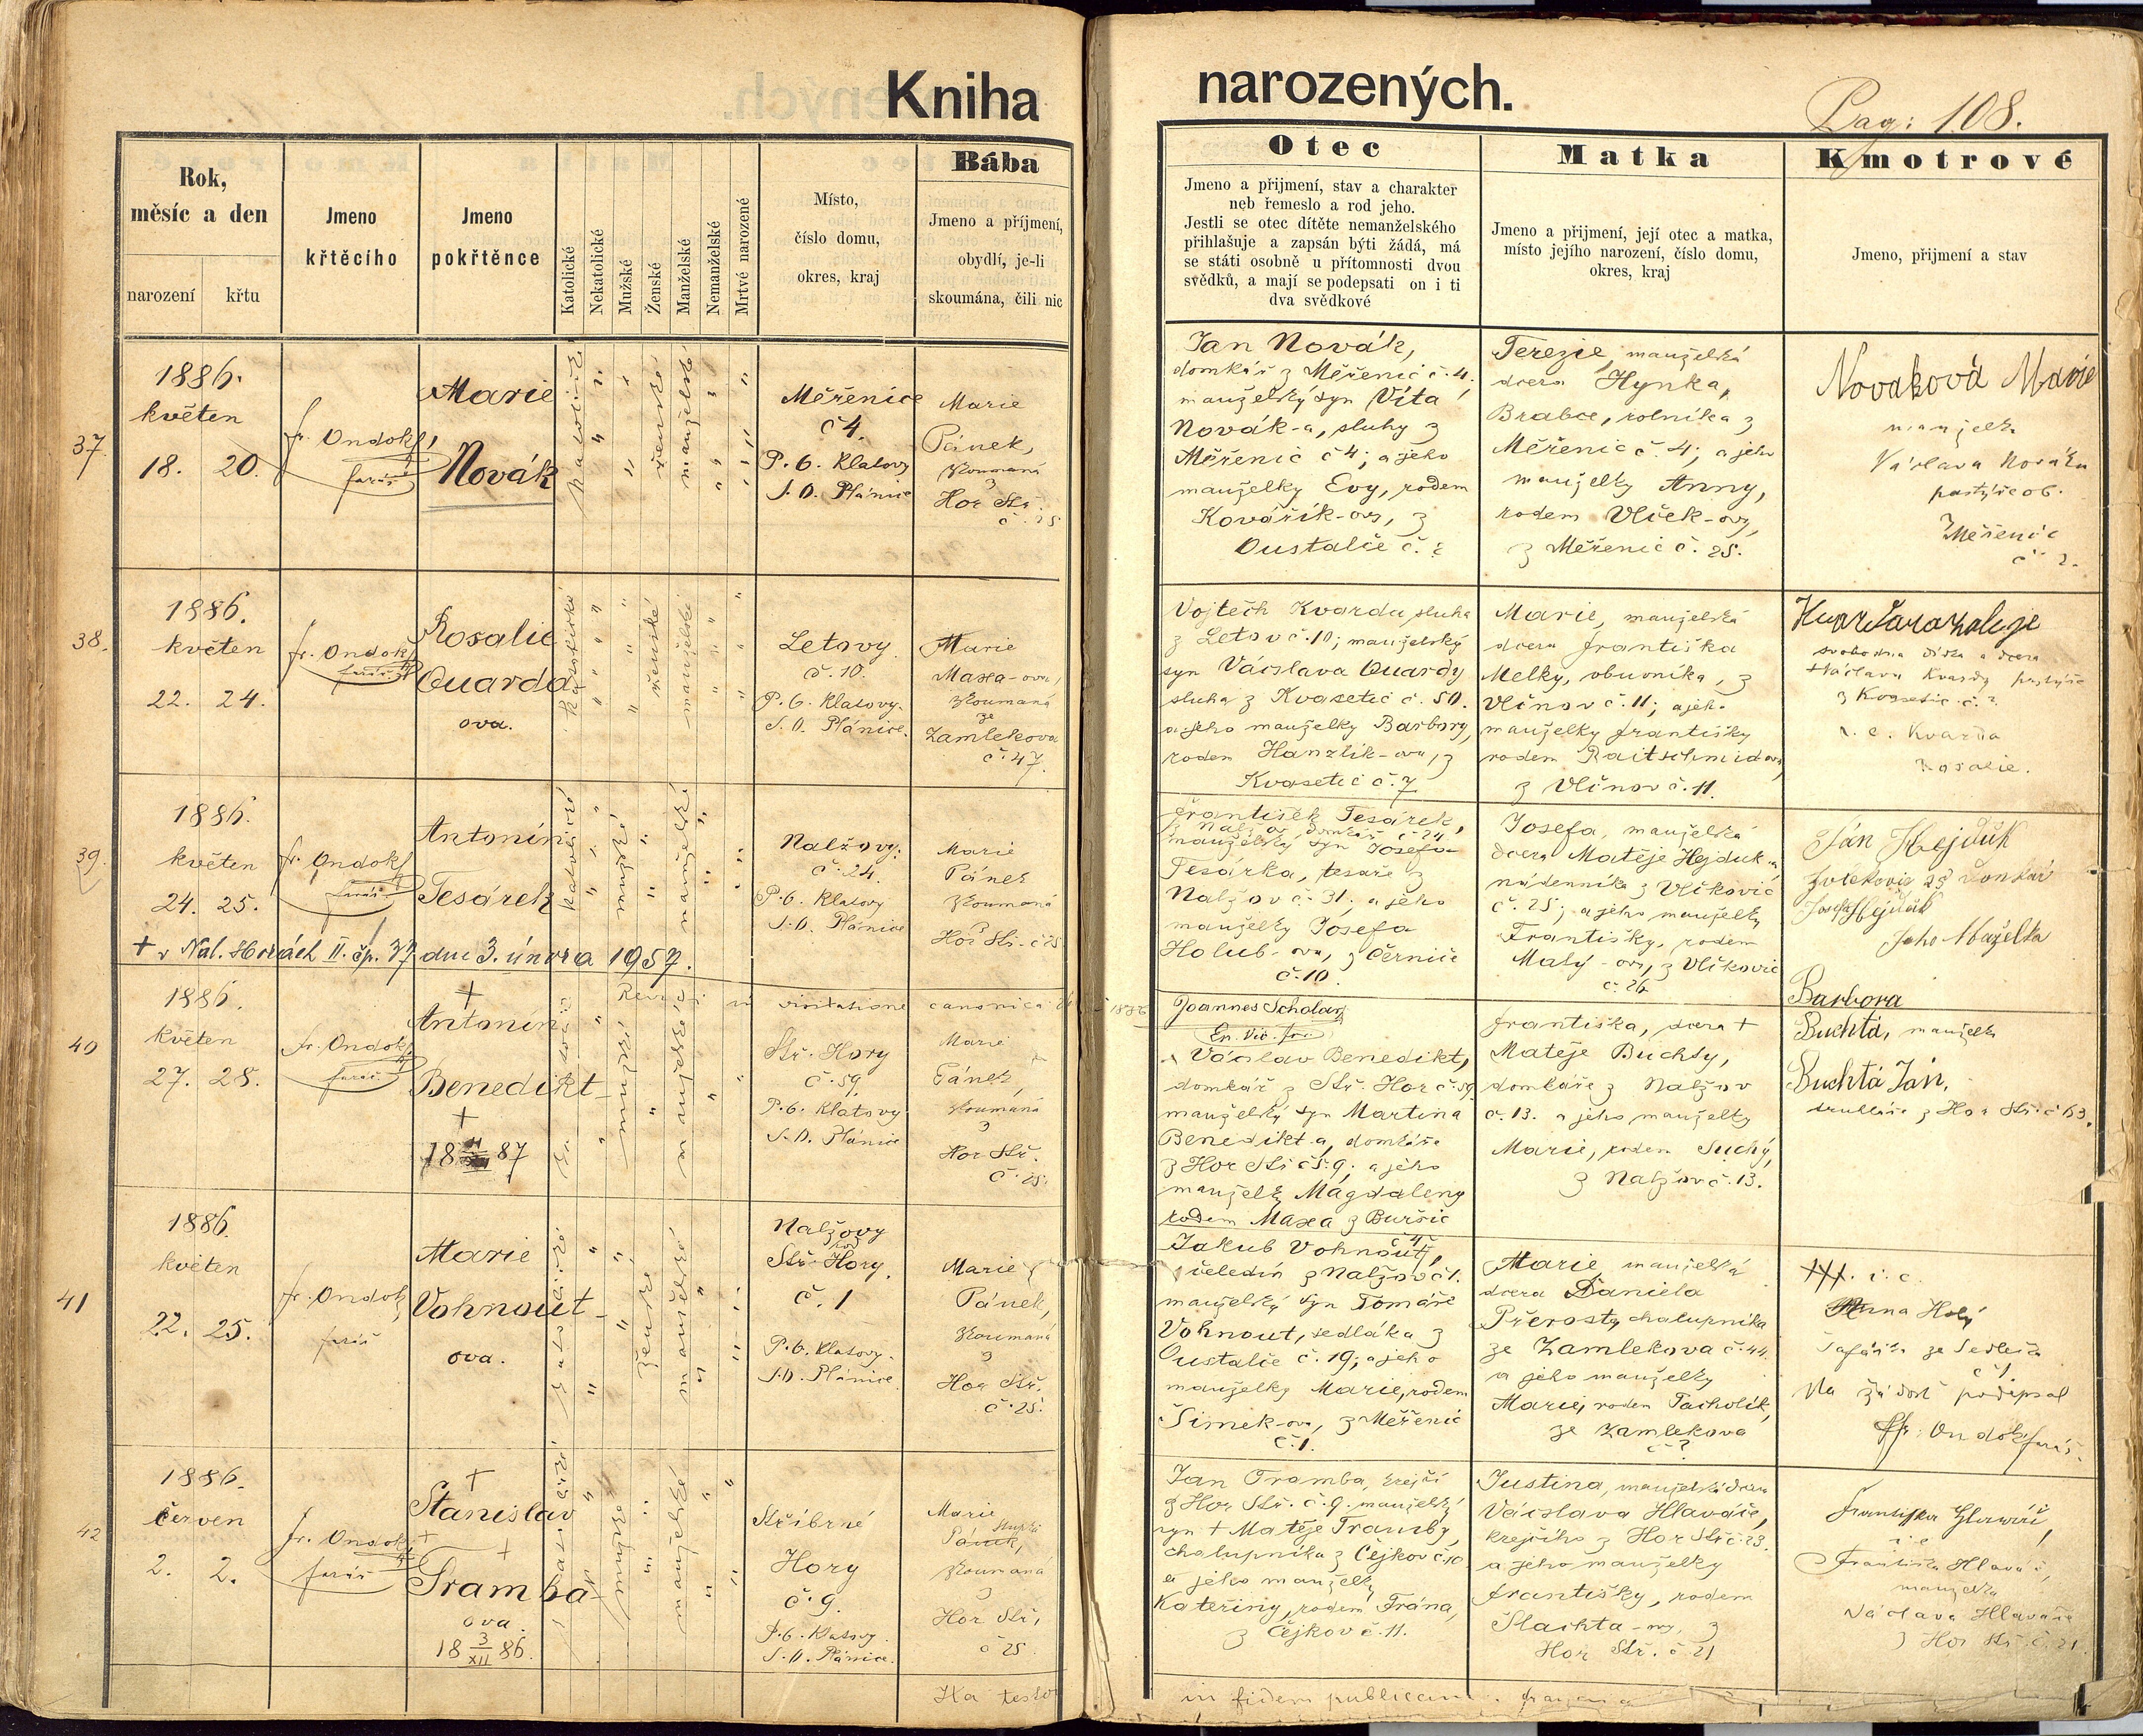 Kniha narozených.
Pag: 108.
Rok,
měsíc a den
narození
křtu
Jmeno
křtěcího
Jmeno
pokřtěnce
Katolické
Nekatolické
Mužské
Ženské
Manželské
Nemanželské
Mrtvé narozené
Místo,
číslo domu,
okres, kraj
Bába
Jmeno a příjmení,
obydlí, je-li
skoumána, čili nic
Otec
Jmeno a přijmení, stav a charakter
neb řemeslo a rod jeho.
Jestli se otec dítěte nemanželského
přihlašuje a zapsán býti žádá, má
se státi osobně u přítomnosti dvou
svědků, a mají se podepsati on i ti
dva svědkové
Matka
Jmeno a přijmení, její otec a matka,
místo jejího narození, číslo domu,
okres, kraj
Kmotrové
Jmeno, přijmení a stav
37.
1886.
květen
18. 20.
fr. Ondok
farář
Marie
Novák
katolické
ženské
manželské
Měřenice
č 4.
P. 6. Klatovy
S. O. Plánice
Marie
Pánek,
zkoumaná
z
Hor Stř.
č. 25
Jan Novák,
domkář z Měřenic č. 4;
manželský syn Víta
Novák-a, sluhy z
Měřenic č 4; a jeho
manželky Evy, rodem
Kovářík-ovy, z
Oustalče č. ?
Terezie, manželská
dcera Hynka
Brabce, rolníka z
Měřenic č. 4; a jeho
manželky Anny,
rodem Vlček-ovy,
z Měřenic č. 25.
Novaková Marie
manželka
Václava Nováka
pastýře ob.
z Měřenic
č 2.
38.
1886.
květen
22. 24.
fr. Ondok
farář
Rosalie
Quarda-
ova.
katolické
ženské
manželské
Letovy
č. 10.
P. 6. Klatovy.
S. O. Plánice.
Marie
Maxa-ova,
zkoumaná
ze
Zamlekova
č. 47.
Vojtěch Kvarda, sluha
z Letov č. 10; manželský
syn Václava Quardy
sluha z Kvasetic č. 50.
a jeho manželky Barbory,
rodem Hanzlík-ova, z
Kvasetic č. 7
Marie, manželská
dcera Františka
Melky, obuvníka, z
Vlčnov č. 11; a jeho
manželky Františky
rodem Raitschmidovy,
z Vlčnov č. 11.
svobodná
Václava Kvardy pastýře
z Kvasetic č. ?
Kvarda
Rosalie.
39.
1886.
květen
24. 25.
fr. Ondok
farář
Antonín
Tesárek
katolické
mužské
manželské
Nalžovy:
č. 24.
P. 6. Klatovy
S. O. Plánice
Marie
Pánek
zkoumaná
z
Hor Stř. č 25
+ v Nal. Horách II. čp. 37 dne 3. února 1957.
František Tesárek,
z Nalžov domkář č 24
manželský syn Josefa
Tesárka, tesaře z
Nalžov č. 31; a jeho
manželky Josefa
Holub-ova, z Černič
č. 10.
Josefa, manželská
dcera Matěje Hejduk-a
nádenníka z Vlčkovic
č. 25; a jeho manželky
Františky, rodem
Malý-ovy, z Vlčkovic
č. 26
Ján Hejduk
Josef Hejduk
Jeho Maželka
Barbora
40
1886.
květen
27. 28.
fr. Ondok
farář
+
Antonín
Benedikt-
+
18 87
mužské
manželské
in visitatione canonica
1886
Joannes Scholar
Stř. Hory
č. 59
P. 6. Klatovy
S. O. Plánice
Marie
Pánek,
zkoumaná
z
Hor Stř.
č. 25.
Václav Benedikt,
domkář z Stř. Hor č. 59
manželský syn Martina
Benedikt-a, domkáře
z Hor Stř č 59; a jeho
manželky Magdaleny
rodem Maxa z Buršic
č 4
Františka, dcera +
Matěje Buchty,
domkáře z Nalžov
č. 13. a jeho manželky
Marie, rodem Suchý,
z Nalžov č. 13.
Buchtá, manželka
Buchtá Ján,
truhláře z Hor Stř. č 63.
41
1886.
květen
22. 25.
fr. Ondok
farář
Marie
Vohnout-
ova.
katolické
ženské
manželské
Nalžovy
pod
Stř. Hory.
č. 1
P. 6. Klatovy.
S. O. Plánice.
Marie
Pánek,
zkoumaná
z
Hor Stř.
č. 25.
Jakub Vohnout,
čeledín z Nalžov č 1.
manželský syn Tomáše
Vohnout, sedláka z
Oustalče č. 19; a jeho
manželky Marie, rodem
Šimek-ova, z Měřenic
č. 1.
Marie manželská
dcera Daniela
Přerosty, chalupníka
ze Zamlekova č. 44.
a jeho manželky
Marie, rodem Tacholík,
ze Zamlekova
č ?
XXX. i. c.
Anna Holý
č 1.
Na žádost podepsal
fr: Ondok farář.
42
1886.
červen
2. 2.
fr. Ondok
farář
+
Stanislav
+
Tramba-
ova
18 3/XII 86.
mužské
manželské
Stříbrné
Hory
č. 9.
P. 6. Klatovy.
S. O. Plánice.
Marie
Pánek,
zkoumaná
z
Hor Stř,
č 25
Jan Tramba, krejčí
z Hor Stř. č. 9. manželský
syn + Matěje Tramby,
chalupníka z Čejkov č. 10
a jeho manželky
Kateřiny, rodem Frána,
z Čejkov č. 11.
Justina, manželská dcera
Václava Hlaváče,
krejčího z Hor Stř č. 23.
a jeho manželky
Františky, rodem
Šlachta-ovy, z
Hor Stř. č 21
i. c
Františka Hlaváč,
manželka
Václava Hlaváče
z Hor Stř. č. 21
in fidem publicam